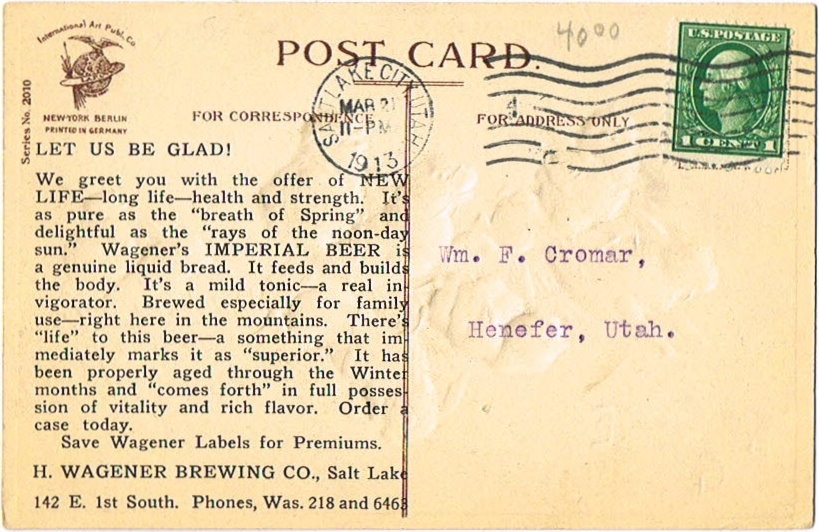 International Art Publ. Co
NEW-YORK BERLIN
PRINTED IN GERMANY
Series No. 2010
POST CARD.
4000
FOR CORRESPONDENCE
FOR ADDRESS ONLY
SALT LAKE CITY, UTAH
MAR 21
11-PM
1913
U.S. POSTAGE
1 CENT 1
LET US BE GLAD!
We greet you with the offer of NEW
LIFE—long life—health and strength. It's
as pure as the "breath of Spring" and
delightful as the "rays of the noon-day
sun." Wagener's IMPERIAL BEER is
a genuine liquid bread. It feeds and builds
the body. It's a mild tonic—a real in-
vigorator. Brewed especially for family
use—right here in the mountains. There's
"life" to this beer—a something that im-
mediately marks it as "superior." It has
been properly aged through the Winter
months and "comes forth" in full posses-
sion of vitality and rich flavor. Order a
case today.
Save Wagener Labels for Premiums.
H. WAGENER BREWING CO., Salt Lake
142 E. 1st South. Phones, Was. 218 and 6463
Wm. F. Cromar,
Henefer, Utah.